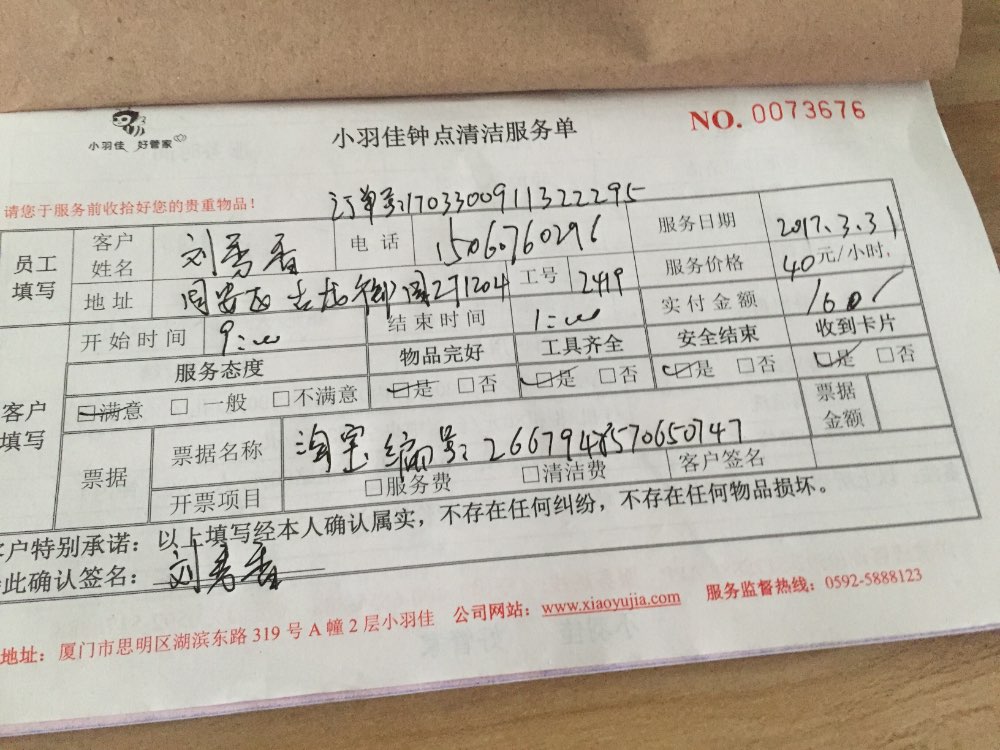 小羽佳 好管家
小羽佳钟点清洁服务单
NO. 0073676
请您于服务前收拾好您的贵重物品！
订单号:1703300911322295
员工填写 客户姓名 刘 香 电话 15060760296 服务日期 2017.3.31
地址 同安区 1204 工号 2419 服务价格 40元/小时.
开始时间 9:00 结束时间 1:00 实付金额 160
客户填写 服务态度 物品完好 工具齐全 安全结束 收到卡片
☑满意 □一般 □不满意 ☑是 □否 ☑是 □否 ☑是 □否 ☑是 □否
票据 票据名称 淘宝编号: 票据金额
开票项目 □服务费 □清洁费 客户签名
客户特别承诺：以上填写经本人确认属实，不存在任何纠纷，不存在任何物品损坏。
此确认签名：刘 香
地址：厦门市思明区湖滨东路319号A幢2层小羽佳 公司网站：www.xiaoyujia.com 服务监督热线：0592-5888123